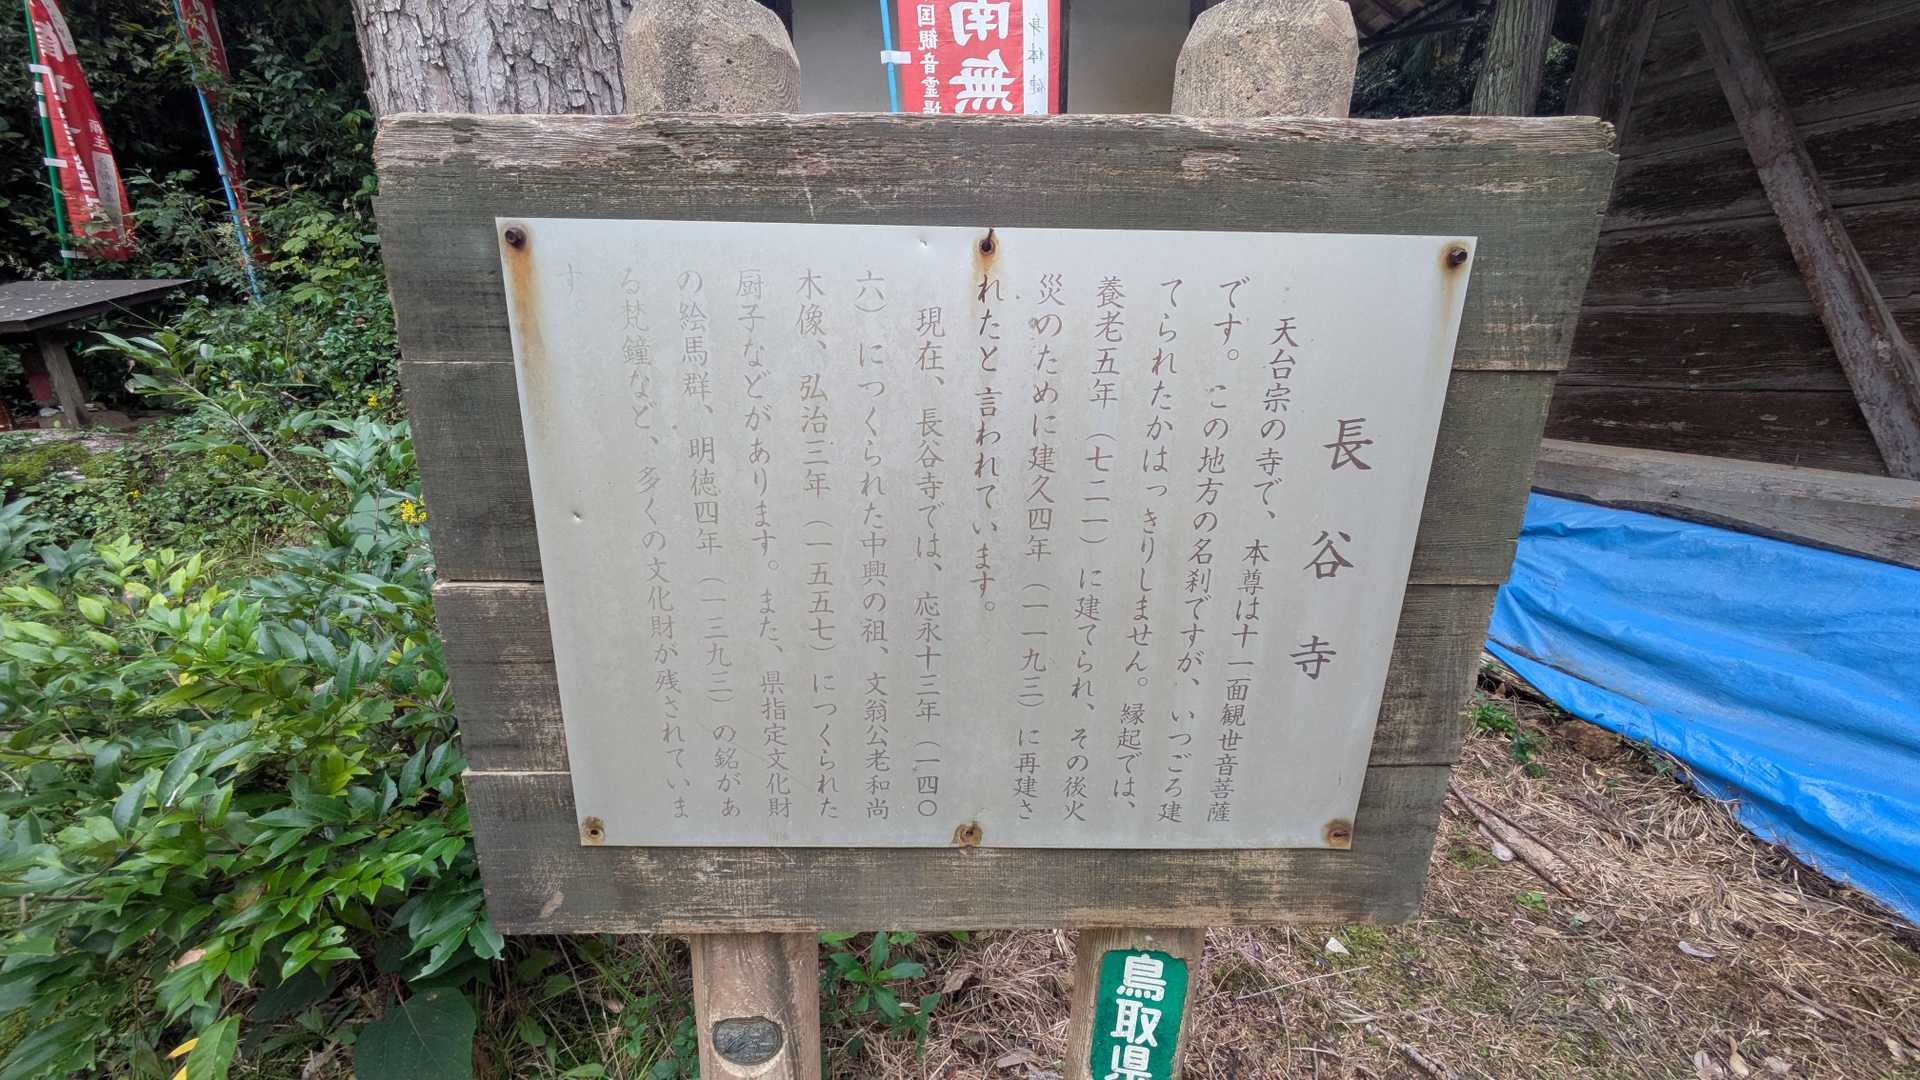 長谷寺
天台宗の寺で、本尊は十一面観世音菩薩
です。この地方の名刹ですが、いつごろ建
てられたかはっきりしません。縁起では、
養老五年（七二一）に建てられ、その後火
災のために建久四年（一一九三）に再建さ
れたと言われています。
現在、長谷寺では、応永十三年（一四〇
六）につくられた中興の祖、文翁公老和尚
木像、弘治三年（一五五七）につくられた
厨子などがあります。また、県指定文化財
の絵馬群、明徳四年（一三九三）の銘があ
る梵鐘など、多くの文化財が残されていま
す。
鳥取県
身体健
南無
国観音霊場